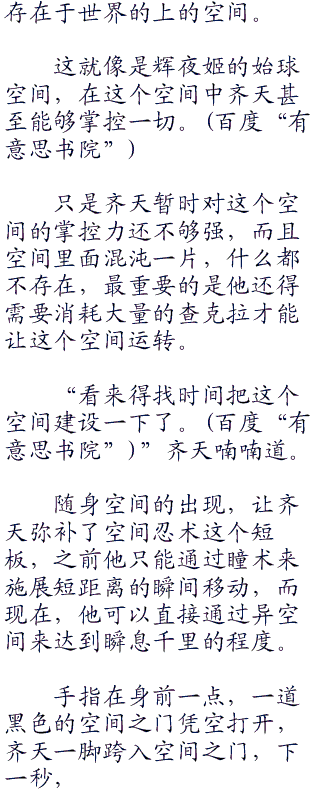 存在于世界的上的空间。
这就像是辉夜姬的始球
空间，在这个空间中齐天甚
至能够掌控一切。(百度“有
意思书院”)
只是齐天暂时对这个空
间的掌控力还不够强，而且
空间里面混沌一片，什么都
不存在，最重要的是他还得
需要消耗大量的查克拉才能
让这个空间运转。
“看来得找时间把这个
空间建设一下了。(百度“有
意思书院”)”齐天喃喃道。
随身空间的出现，让齐
天弥补了空间忍术这个短
板，之前他只能通过瞳术来
施展短距离的瞬间移动，而
现在，他可以直接通过异空
间来达到瞬息千里的程度。
手指在身前一点，一道
黑色的空间之门凭空打开，
齐天一脚跨入空间之门，下
一秒，